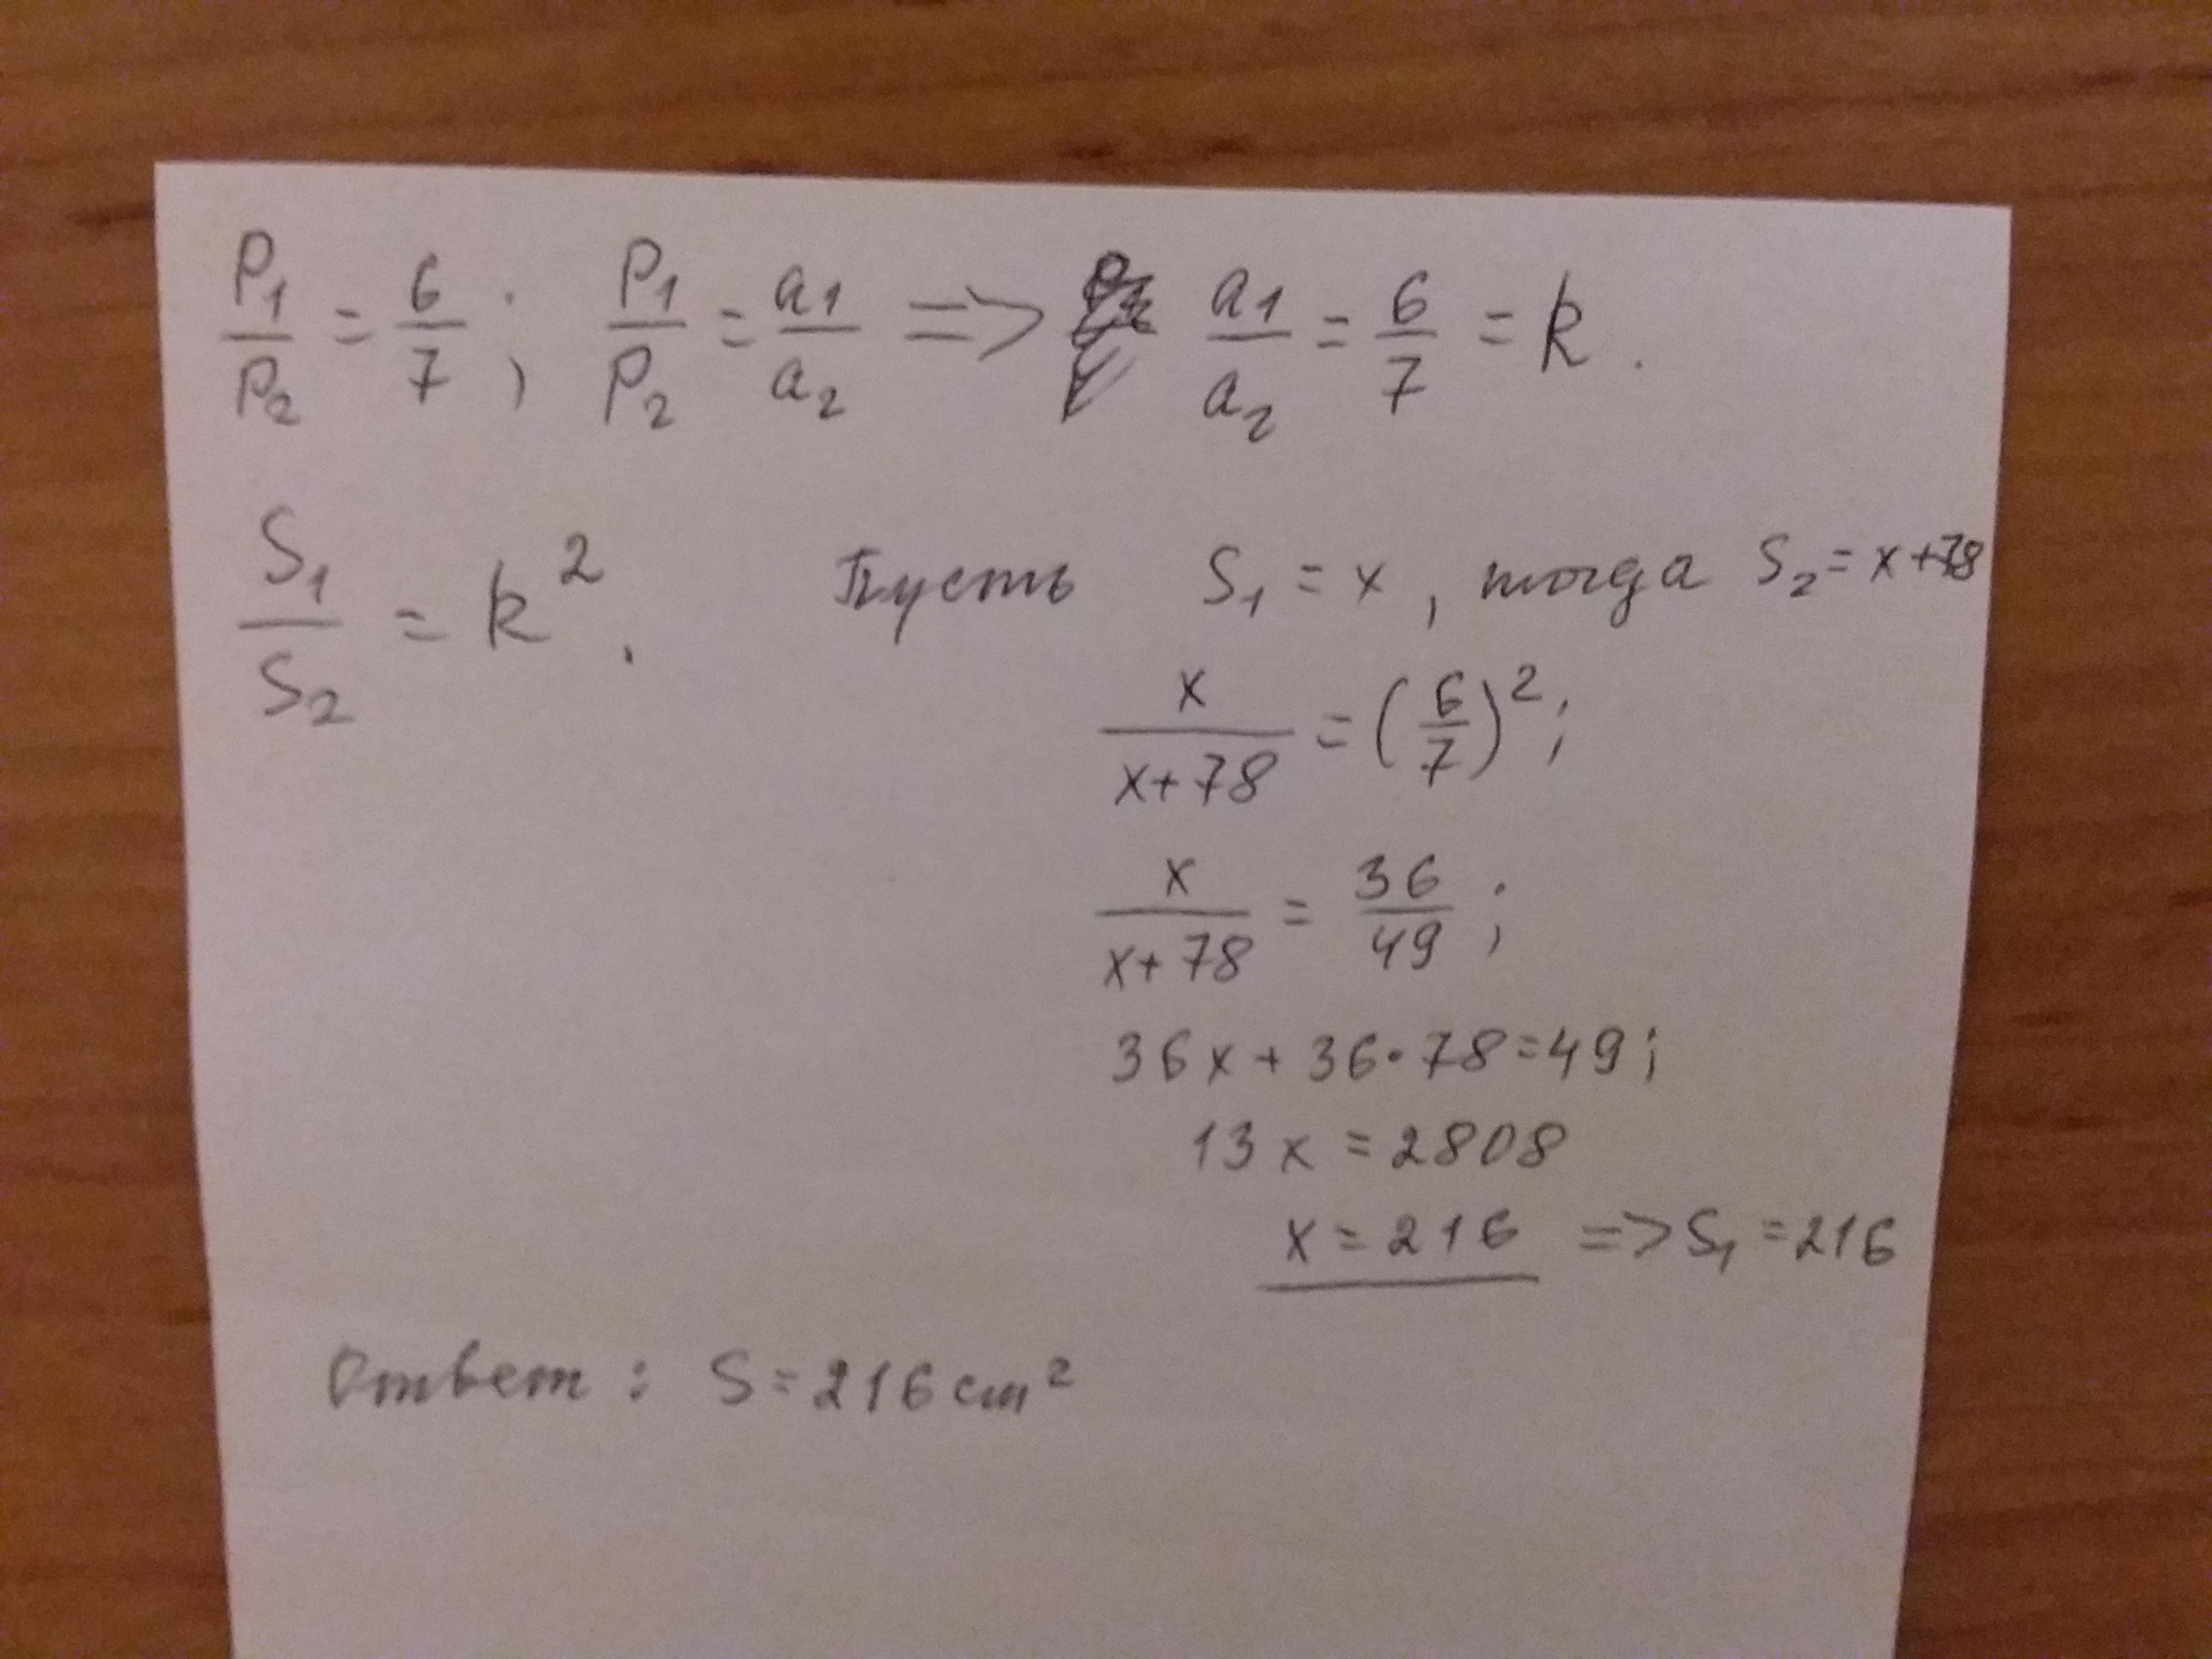 P₁/P₂ = 6/7 ; P₁/P₂ = a₁/a₂ => a₁/a₂ = 6/7 = k.
S₁/S₂ = k². Пусть S₁ = x, тогда S₂ = x+78
x/(x+78) = (6/7)²;
x/(x+78) = 36/49 ;
36x + 36·78=49;
13x = 2808
x = 216 => S₁ = 216
Ответ: S = 216 см²